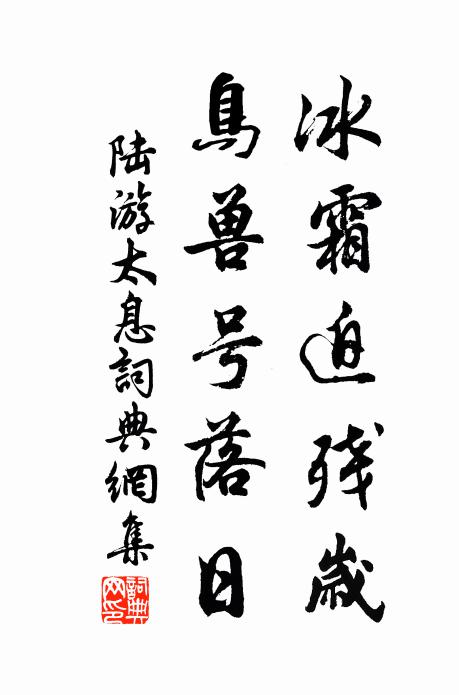 冰霜迫残歳
鳥兽号落日
陆游太息詞典網集
詞典網印